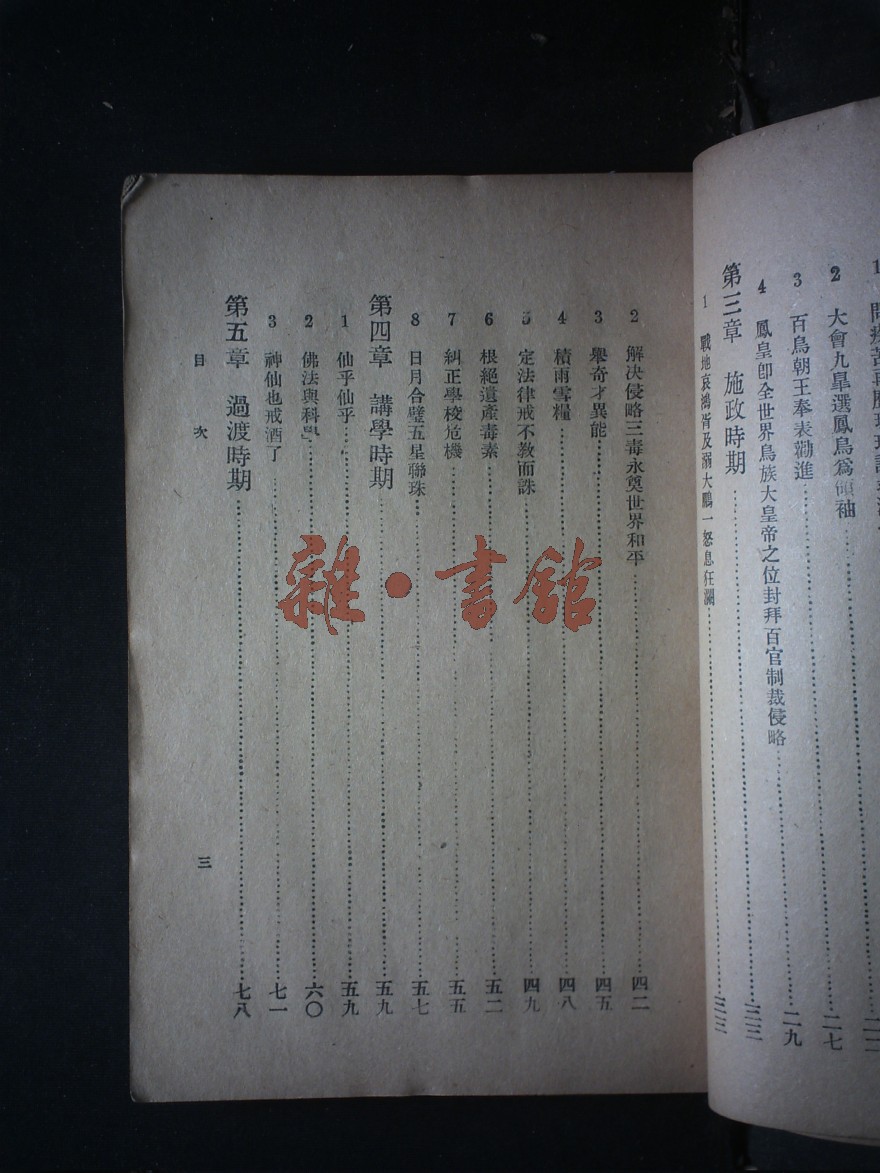 2 大會九臯選鳳鳥爲領袖……二七
3 百鳥朝王奉表勸進……二九
4 鳳皇卽全世界鳥族大皇帝之位封拜百官制裁侵略……三三
第三章 施政時期……三三
1 戰地哀鴻胥及溺大鵬一怒息狂瀾……三三
2 解決侵略三毒永奠世界和平……四二
3 舉奇才異能……四五
4 積雨雪糧……四八
5 定法律戒不敎而誅……四九
6 根絕遺產毒素……五二
7 糾正學校危機……五五
8 日月合璧五星聯珠……五七
第四章 講學時期……五九
1 仙乎仙乎……五九
2 佛法與科學……六〇
3 神仙也戒酒了……七一
第五章 過渡時期……七八
目次
三
雜·書館